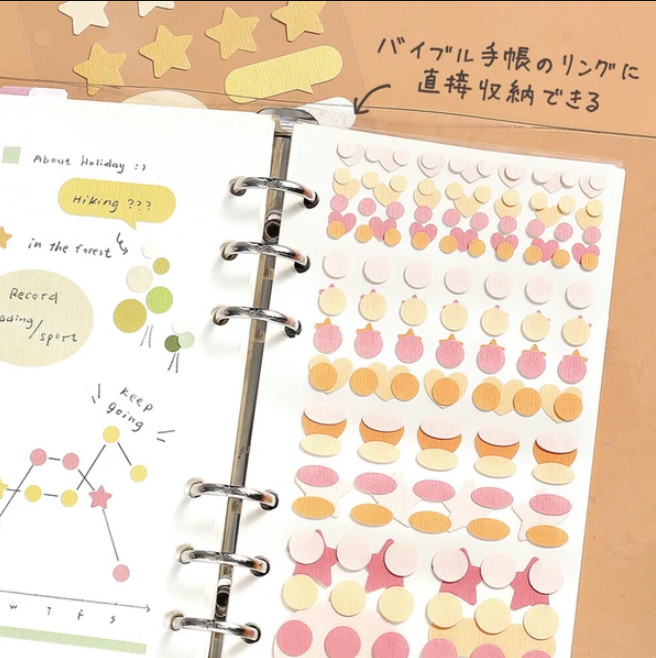 バイブル手帳のリングに
直接収納できる
About Holiday :)
Hiking ???
in the forest
Record
/sport
keep
going
W T F S